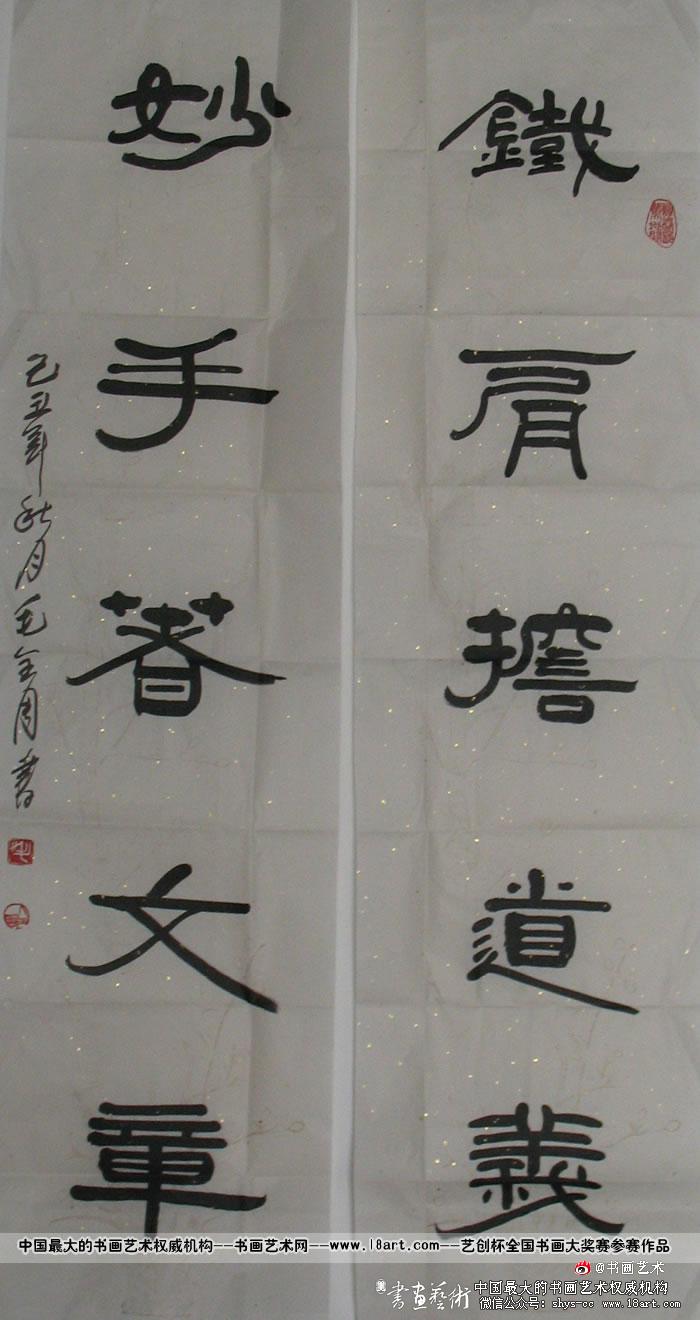 鐵肩擔道義
妙手著文章
己丑年秋月毛全周書
中国最大的书画艺术权威机构——书画艺术网——www.18art.com——艺创杯全国书画大奖赛参赛作品
@书画艺术
書畫藝術
中国最大的书画艺术权威机构
微信公众号：shys-cc www.18art.com